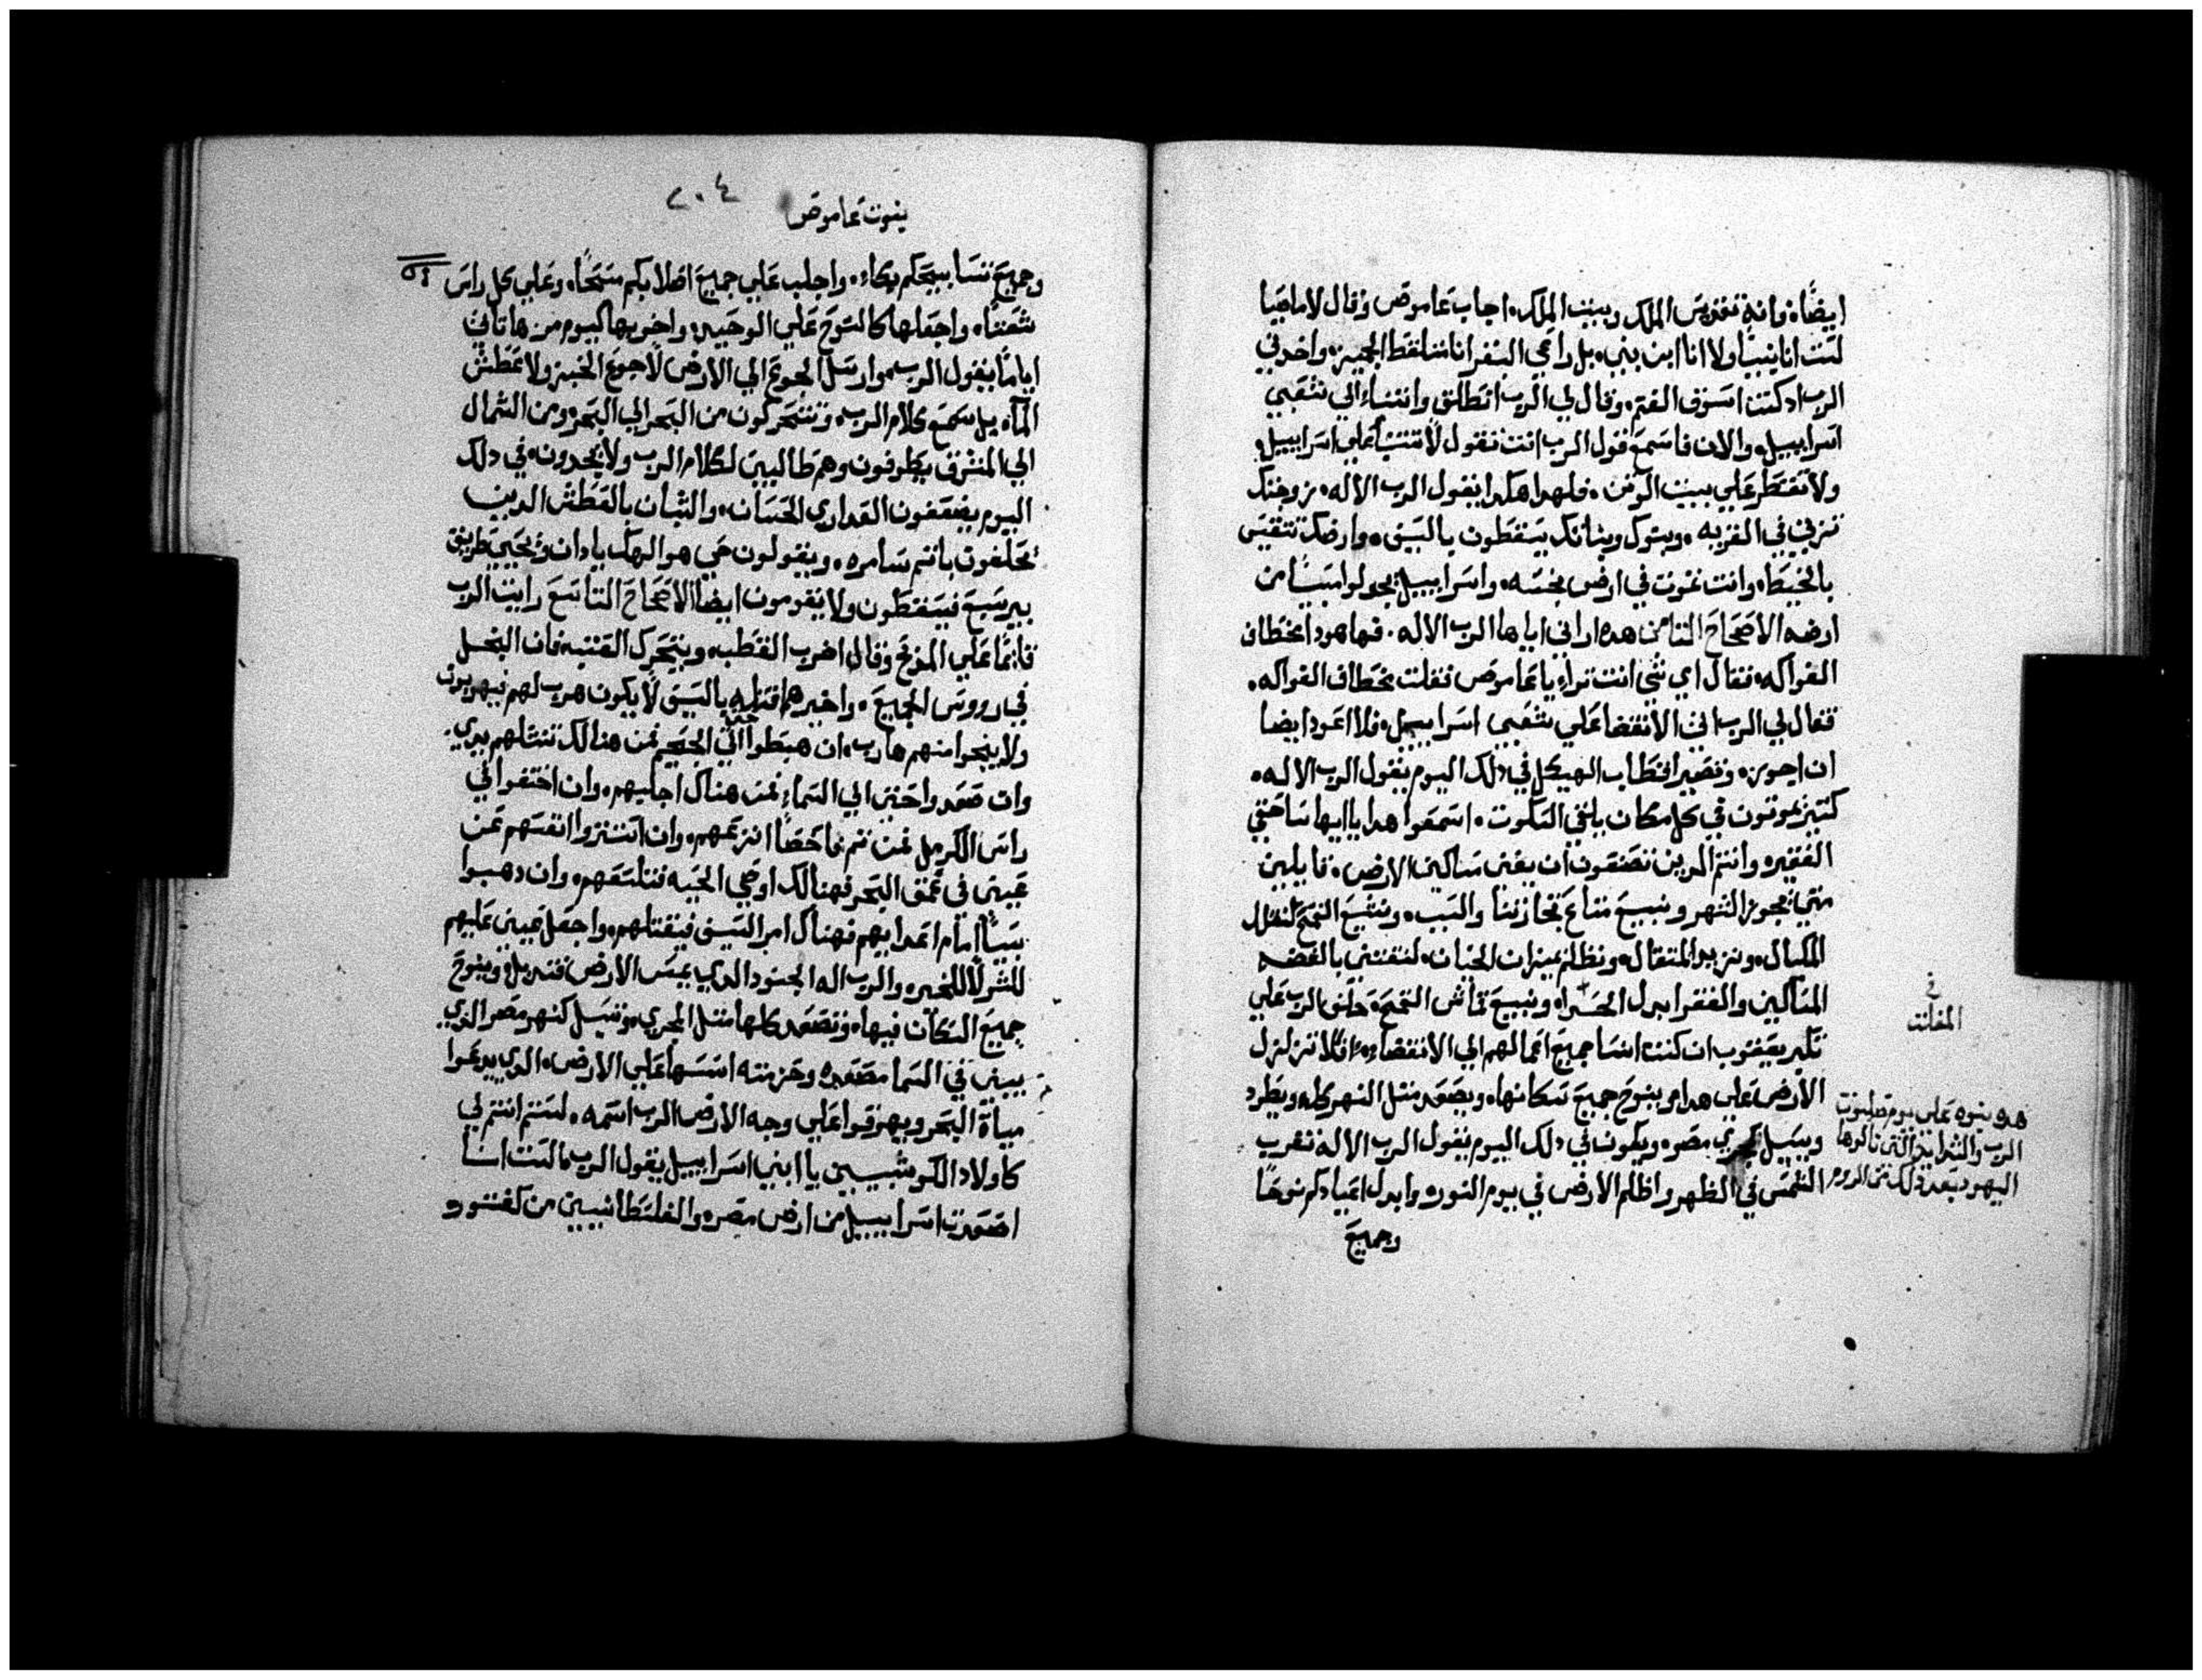 ايضًا. فانه تقديس الملك وبيت الملكه. اجاب عاموص وقال لاماصيا
لست انا نبيًا ولا انا ابن نبي. بل راعي البقر انا سالقط الجميز. واخدني
الرب اد كنت اسوق الغنم. وقال لي الرب انطلق واتنباء الي شعبي
اسراييل. والان فاسمع قول الرب انت تقول لا تتنبا علي اسراييل.
ولا تقطر علي بيت الوتن. فلهدا هكدا يقول الرب الاله. زوجتك
تزني في القريه. وبنوك وبناتك يسقطون بالسيف. وارضك تتقيس
بالخيط. وانت تموت في ارض نجسه. واسراييل يجولوا سبيًا من
ارضه الاصحاح التامن هده اراني اياها الرب الاله. فها هودا مخطاف
الفواكه. فقال اي شي انت تراي يا عاموص فقلت مخطاف الفواكه.
فقال لي الرب اتي الانقضا علي شعبي اسراييل. فلا اعود ايضا
ان اجوزه. وتصير اقطاب الهيكل في دلك اليوم يقول الرب الاله.
كتير يموتون في كل مكان يلقي السكوت. اسمعوا هدا يا ايها ساحقي
الفقير. وانتم الدين تصنعون ان يفني مساكين الارض. قايلين
متي يجوز الشهر ونبيع متاع تجازتنا والسبت. ونشيع القمح لنقلل
المكيال. ونزيد المتقال. ونظلم بميزان الخيان. لنقتني بالفضه
المساكين والفقرا بدل الحدا. ونبيع قماش القمح. حلف الرب علي
تكبر يعقوب ان كنت انسا جميع اعمالهم الي الانقضاء. افلا تزلزل
الارض علي هدا. وينوح جميع سكانها. ويصعد متل النهر كله. ويطرد
ويسيل كجري مصر. ويكون في دلك اليوم يقول الرب الاله تغرب
الشمس في الظهر واظلم الارض في يوم النور. وابدل اعيادكم نوحًا
وجميع
في
المغلت
هده نبوه علي يوم صلبوت
الرب والشدايد التي نالوها
اليهود بعد دلك من الروم
نبوت عاموص
٢٠٤
وجميع تسابيحكم بكاء. واجلب علي جميع اصلابكم مسحًا. وعلي كل راس
شعتًا. واجعلها كالنوح علي الوحيد. واخريها كيوم مر. ها تاتي
ايامًا يقول الرب. وارسل الجوع الي الارض لا جوع الخبز ولا عطش
الماء. بل سمع كلام الرب. وتتحركون من البحر الي البحر ومن الشمال
الي المشرق يطوفون وهم طالبين لكلام الرب ولا يجدون. في دلك
اليوم يضعفون العداري الحسان. والشبان بالعطش الدين
تحلفون باتم سامره. ويقولون حي هو الهك يا دان ويحيي طريق
بيرسبع فيسقطون ولا يقومون ايضا الاصحاح التاسع رايت الرب
قايمًا علي المدبح وقال اضرب القطب. ويتحرك العتبه فان البخل
في روس الجميع. واخيرهم اقتله بالسيف لا يكون هرب لهم فيهربون
ولا ينجوا منهم هارب. ان هبطوا الي الجحيم فمن هنالك تنشلهم يدي.
وان صعدوا حتي الي السماء فمن هناك اجليهم. وان اختفوا في
راس الكرمل فمن تم فاحصًا انزعهم. وان استتروا انفسهم عن
عيني في عمق البحر فهنالك اوصي الحيه فتلسعهم. وان دهبوا
سبيًا امام اعدايهم فهناك امر السيف فيقتلهم. واجعل عيني عليهم
للشر لا للخير. والرب اله الجنود الدي يمس الارض فتدبل. وينوح
جميع السكان فيها. وتصعد كلها متل المجري. وتسيل كنهر مصر الدي
يبني في السما مصعده وحزمته اسسها علي الارض. الدي يدعوا
مياة البحر ويهرقوا علي وجه الارض الرب اسمه. لستم انتم لي
كاولاد الكوشيين يا ابني اسراييل يقول الرب. الست انا
اصعدت اسراييل من ارض مصر. والفلسطانيين من كفتور